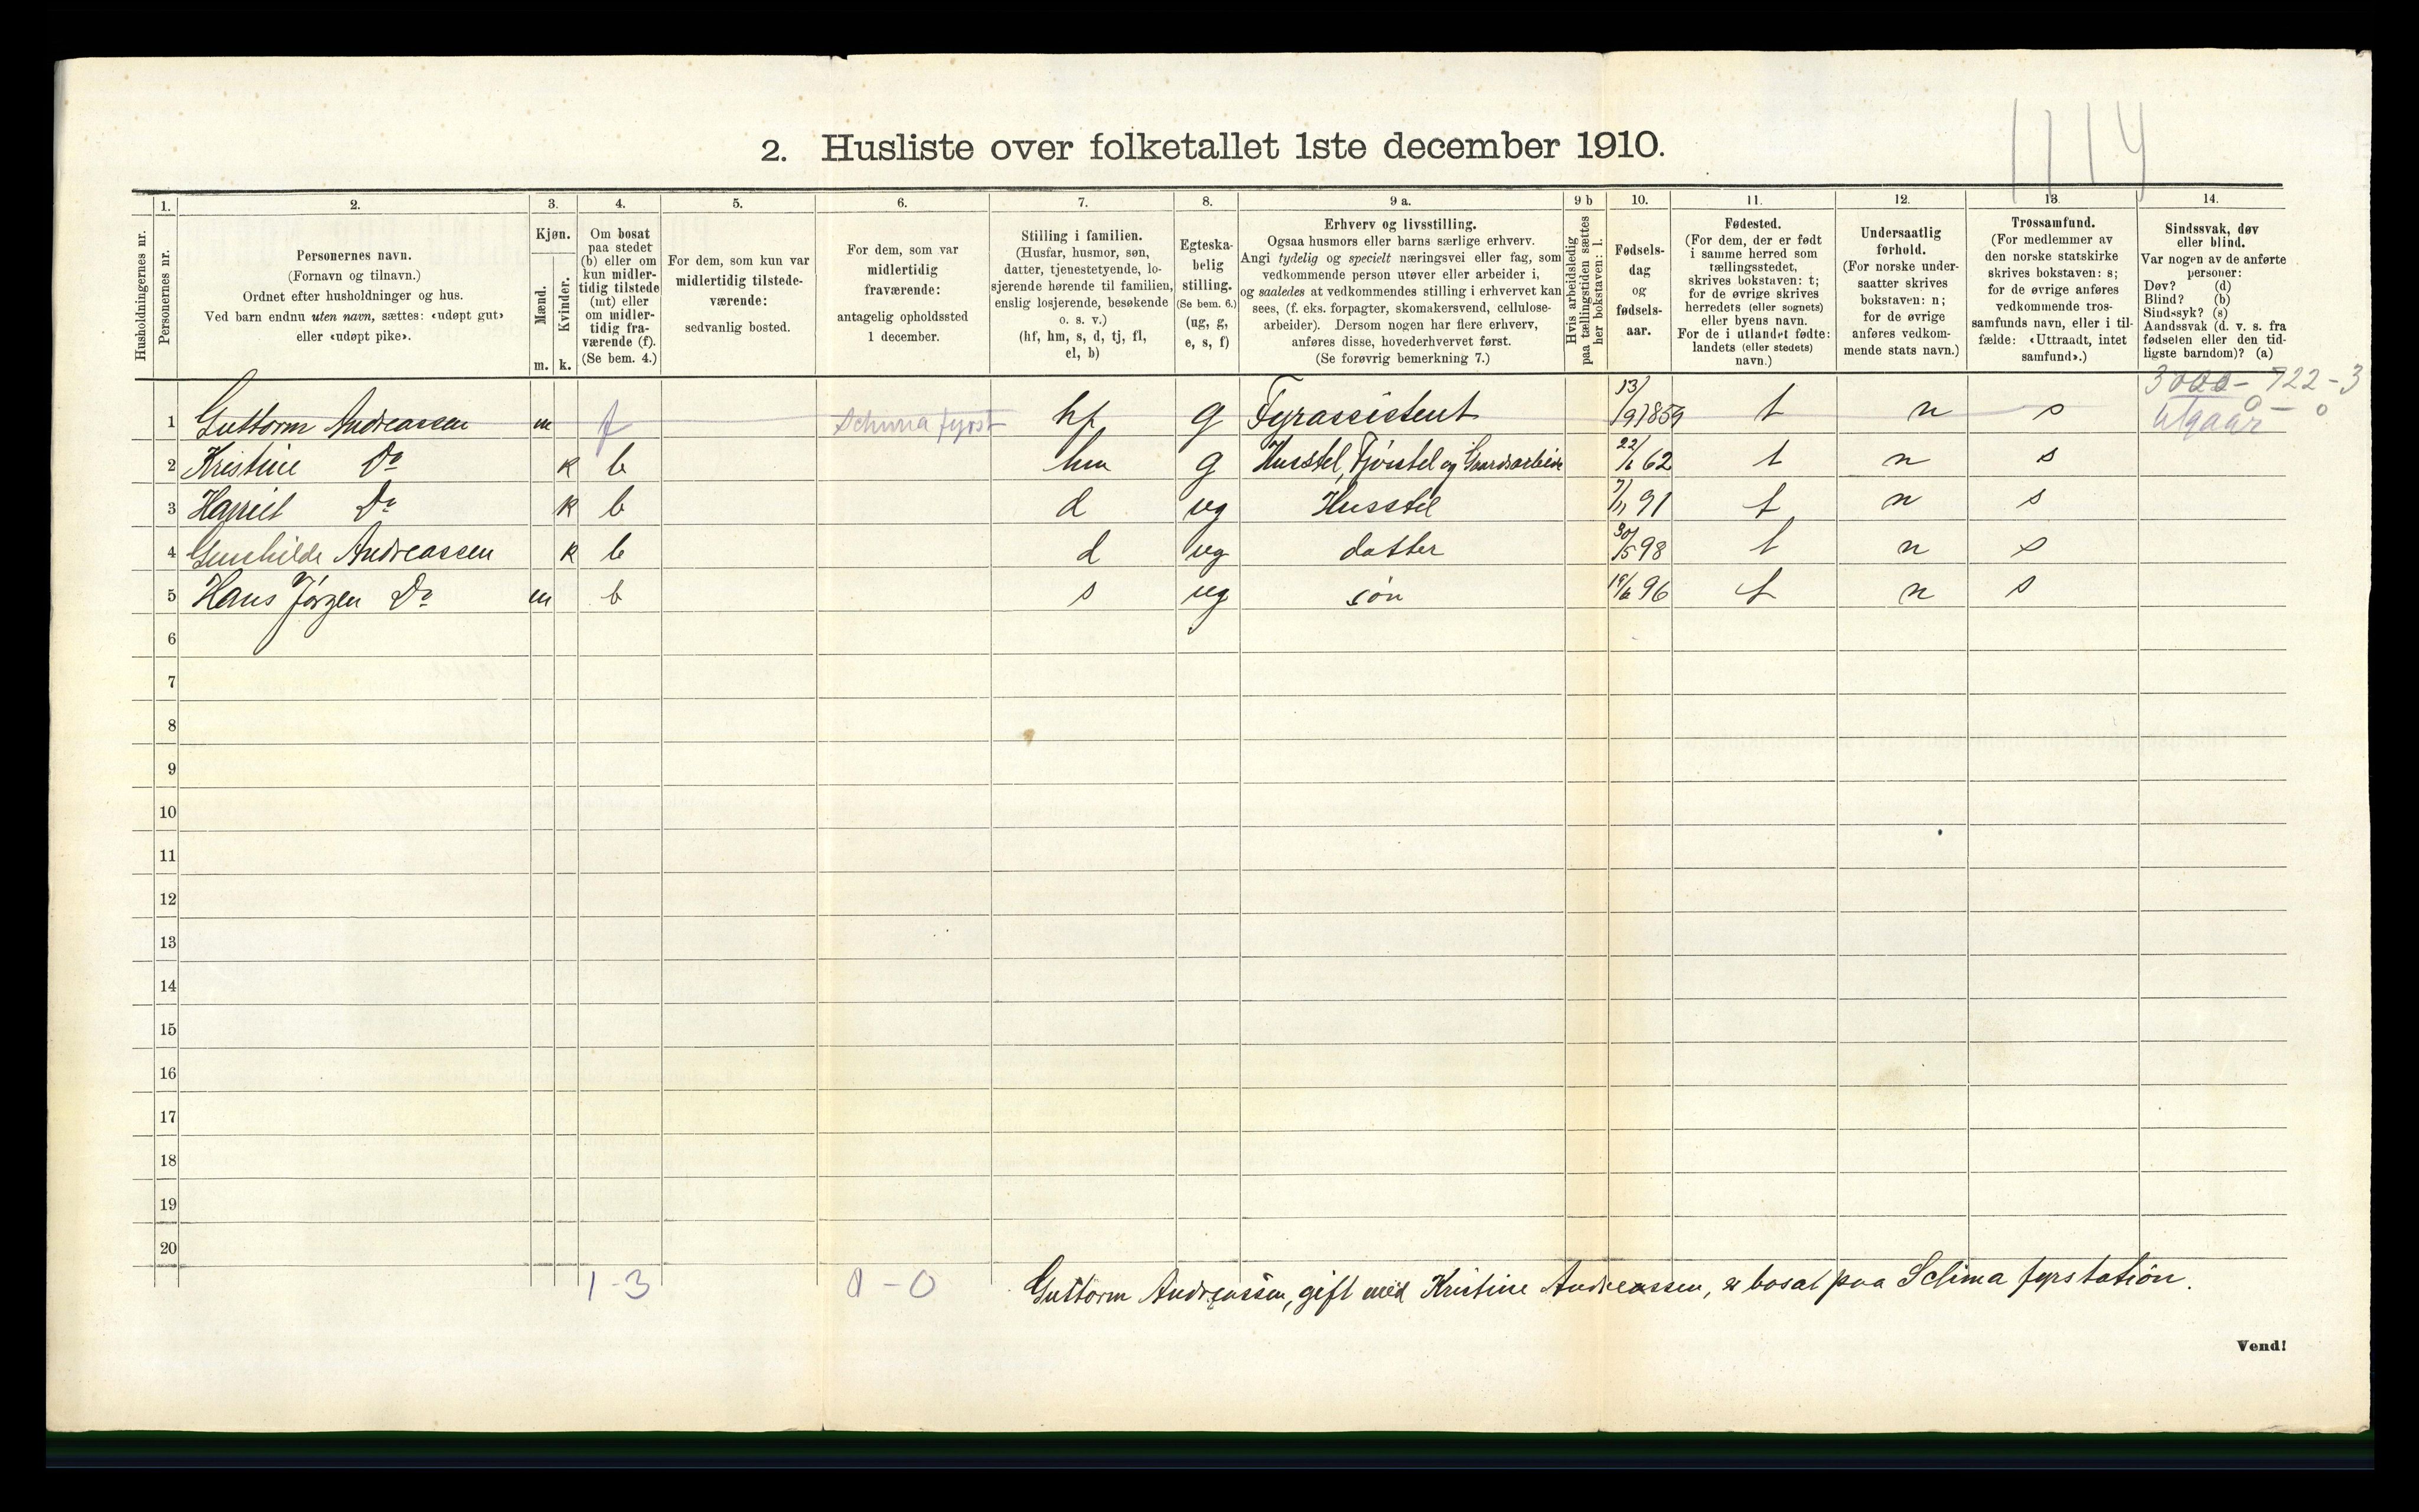 2. Husliste over folketallet 1ste december 1910.
1. 2. 3. 4. 5. 6. 7. 8. 9 a. 9 b 10. 11. 12. 13. 14.
Husholdningernes nr.
Personernes nr.
Personernes navn.
(Fornavn og tilnavn.)
Ordnet efter husholdninger og hus.
Ved barn endnu uten navn, sættes: «udøpt gut»
eller «udøpt pike».
Kjøn.
Mænd.
Kvinder.
m. k.
Om bosat
paa stedet
(b) eller om
kun midler-
tidig tilstede
(mt) eller
om midler-
tidig fra-
værende (f).
(Se bem. 4.)
For dem, som kun var
midlertidig tilstede-
værende:
sedvanlig bosted.
For dem, som var
midlertidig
fraværende:
antagelig opholdssted
1 december.
Stilling i familien.
(Husfar, husmor, søn,
datter, tjenestetyende, lo-
sjerende hørende til familien,
enslig losjerende, besøkende
o. s. v.)
(hf, hm, s, d, tj, fl,
el, b)
Egteska-
belig
stilling.
(Se bem. 6.)
(ug, g,
e, s, f)
Erhverv og livsstilling.
Ogsaa husmors eller barns særlige erhverv.
Angi tydelig og specielt næringsvei eller fag, som
vedkommende person utøver eller arbeider i,
og saaledes at vedkommendes stilling i erhvervet kan
sees, (f. eks. forpagter, skomakersvend, cellulose-
arbeider). Dersom nogen har flere erhverv,
anføres disse, hovederhvervet først.
(Se forøvrig bemerkning 7.)
Hvis arbeidsledig
paa tællingstiden sættes
her bokstaven: l.
Fødsels-
dag
og
fødsels-
aar.
Fødested.
(For dem, der er født
i samme herred som
tællingsstedet,
skrives bokstaven: t;
for de øvrige skrives
herredets (eller sognets)
eller byens navn.
For de i utlandet fødte:
landets (eller stedets)
navn.)
Undersaatlig
forhold.
(For norske under-
saatter skrives
bokstaven: n;
for de øvrige
anføres vedkom-
mende stats navn.)
Trossamfund.
(For medlemmer av
den norske statskirke
skrives bokstaven: s;
for de øvrige anføres
vedkommende tros-
samfunds navn, eller i til-
fælde: «Uttraadt, intet
samfund».)
Sindssvak, døv
eller blind.
Var nogen av de anførte
personer:
Døv? (d)
Blind? (b)
Sindssyk? (s)
Aandssvak (d. v. s. fra
fødselen eller den tid-
ligste barndom)? (a)
1 Guttorm Andreassen m f hf g Fyrassistent 13/9 1859 t n s Utgaar
2 Kristine Do k b hm g Husstel, Fjøsstel og Gaardsarbeide 22/6 62 t n s
3 Harriet Do k b d ug Husstel 7/11 91 t n s
4 Gunhilde Andreassen k b d ug datter 30/5 98 t n s
5 Hans Jørgen Do m b s ug søn 96 t n s
6
7
8
9
10
11
12
13
14
15
16
17
18
19
20
1-3 0-0
Guttorm Andreassen, gift med Kristine Andreassen, er bosat paa Sclima fyrstation.
Vend!